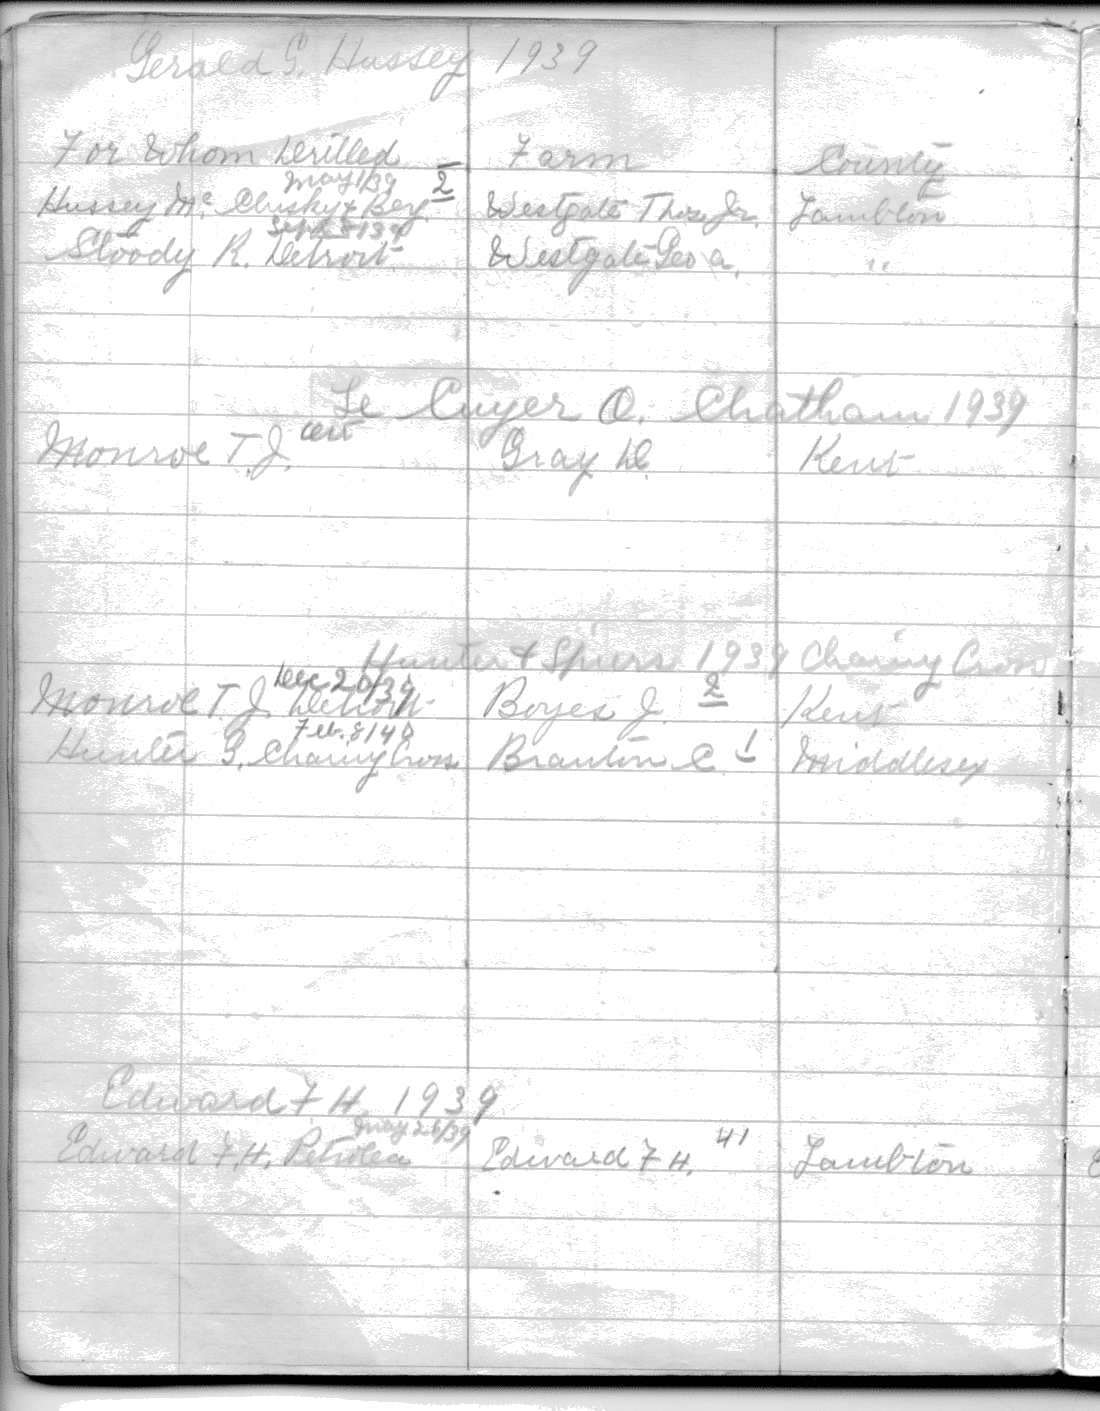 Gerald G. Hussey 1939
For Whom Drilled Farm County
May 1/39
Hussey Mc Clusky & Bey. 2 Westgate Thos. Jr. Lambton
Sept. 5/39
Stoody R. Detroit. Westgate Geo a. "
Le Cuyer O. Chatham 1939
Monroe T. J. Gray D. Kent
Hunter & Spiers 1939 Charing Cross
Dec 20/39
Monroe T. J. Detroit Boyes J. 2 Kent
Feb. 8/40
Hunter G. Charing Cross Branton C. 1 Middlesex
Edward F. H. 1939
May 26/39
Edward F. H. Petrolea Edward F H. 41 Lambton